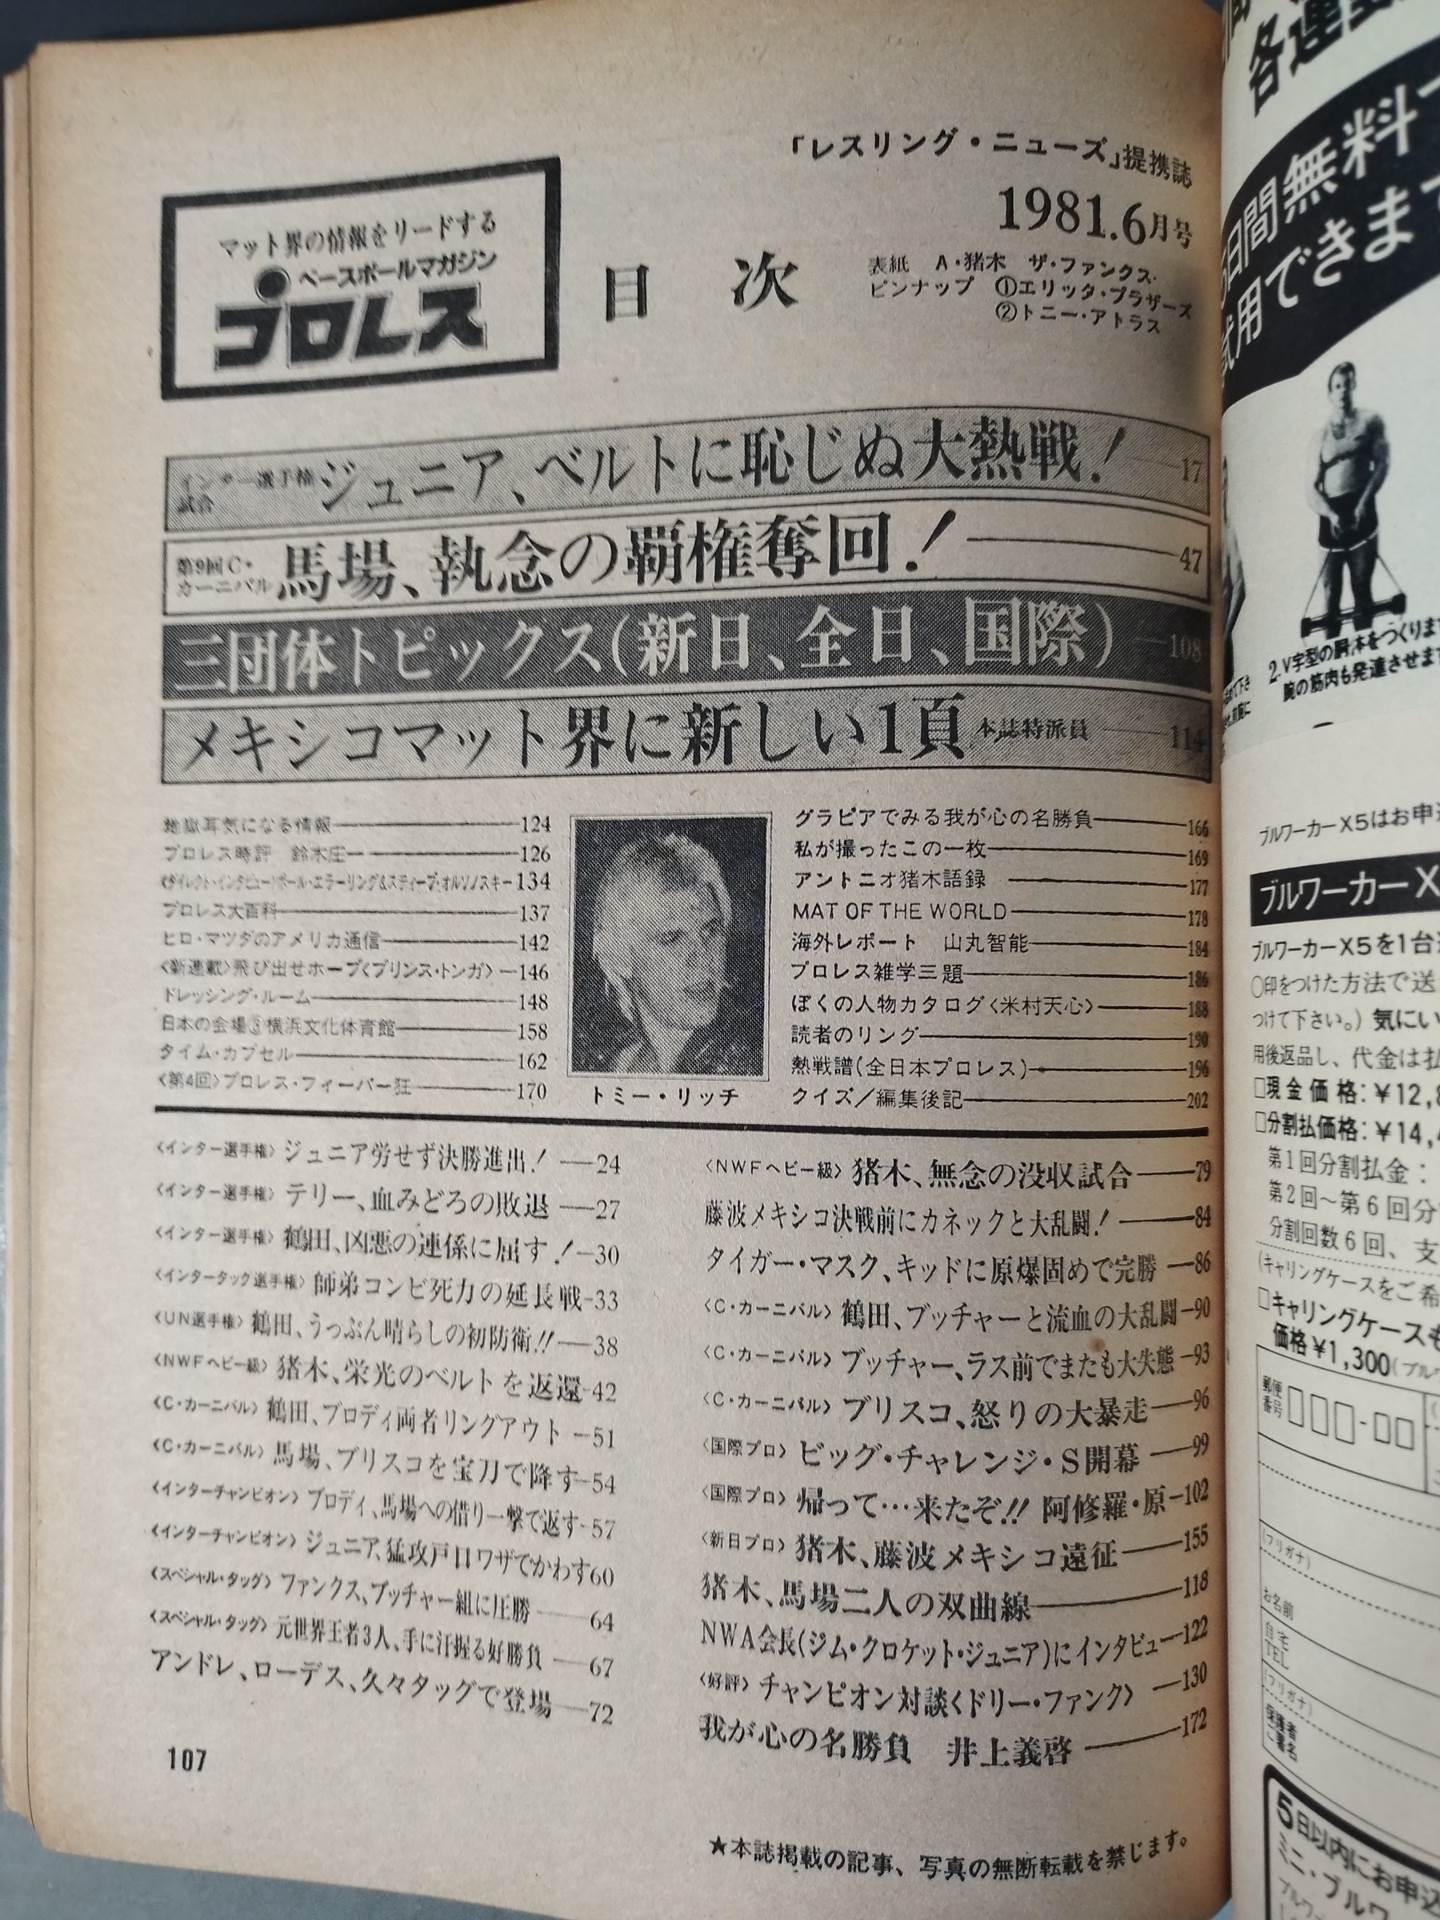 「レスリング・ニューズ」提携誌
1981.6月号
マット界の情報をリードする
ベースボールマガジン
プロレス
目次
表紙 A・猪木 ザ・ファンクス
ピンナップ ①エリック・ブラザーズ
②トニー・アトラス
インター選手権試合 ジュニア、ベルトに恥じぬ大熱戦！ 17
第9回C・カーニバル 馬場、執念の覇権奪回！ 47
三団体トピックス(新日、全日、国際) 108
メキシコマット界に新しい1頁 本誌特派員 114
地獄耳気になる情報 124
プロレス時評 鈴木庄一 126
〈ダイレクト・インタビュー〉ポール・エラーリング&スティーブ・オルソノスキー 134
プロレス大百科 137
ヒロ・マツダのアメリカ通信 142
〈新連載〉飛び出せホープ〈プリンス・トンガ〉 146
ドレッシング・ルーム 148
日本の会場③横浜文化体育館 158
タイム・カプセル 162
〈第4回〉プロレス・フィーバー狂 170
トミー・リッチ
グラビアでみる我が心の名勝負 166
私が撮ったこの一枚 169
アントニオ猪木語録 177
MAT OF THE WORLD 178
海外レポート 山丸智能 184
プロレス雑学三題 186
ぼくの人物カタログ〈米村天心〉 188
読者のリング 190
熱戦譜(全日本プロレス) 196
クイズ／編集後記 202
〈インター選手権〉ジュニア労せず決勝進出！ 24
〈インター選手権〉テリー、血みどろの敗退 27
〈インター選手権〉鶴田、凶悪の連係に屈す！ 30
〈インタータック選手権〉師弟コンビ死力の延長戦 33
〈UN選手権〉鶴田、うっぷん晴らしの初防衛!! 38
〈NWFヘビー級〉猪木、栄光のベルトを返還 42
〈C・カーニバル〉鶴田、ブロディ両者リングアウト 51
〈C・カーニバル〉馬場、ブリスコを宝刀で降す 54
〈インターチャンピオン〉ブロディ、馬場への借り一撃で返す 57
〈インターチャンピオン〉ジュニア、猛攻戸口ワザでかわす 60
〈スペシャル・タッグ〉ファンクス、ブッチャー組に圧勝 64
〈スペシャル・タッグ〉元世界王者3人、手に汗握る好勝負 67
アンドレ、ローデス、久々タッグで登場 72
〈NWFヘビー級〉猪木、無念の没収試合 79
藤波メキシコ決戦前にカネックと大乱闘！ 84
タイガー・マスク、キッドに原爆固めで完勝 86
〈C・カーニバル〉鶴田、ブッチャーと流血の大乱闘 90
〈C・カーニバル〉ブッチャー、ラス前でまたも大失態 93
〈C・カーニバル〉ブリスコ、怒りの大暴走 96
〈国際プロ〉ビッグ・チャレンジ・S開幕 99
〈国際プロ〉帰って…来たぞ!! 阿修羅・原 102
〈新日プロ〉猪木、藤波メキシコ遠征 155
猪木、馬場二人の双曲線 118
NWA会長(ジム・クロケット・ジュニア)にインタビュー 122
〈好評〉チャンピオン対談〈ドリー・ファンク〉 130
我が心の名勝負 井上義啓 172
107
★本誌掲載の記事、写真の無断転載を禁じます。
各運
日間無料
試用できます
2.V字型の胴体をつくります
腕の筋肉も発達させます
ブルワーカーX5はお申
ブルワーカーX
ブルワーカーX5を1台
○印をつけた方法で送
つけて下さい。) 気にい
用後返品し、代金は払
□現金価格：￥12,8
□分割払価格：￥14,4
第1回分割払金：
第2回～第6回分
分割回数6回、支
(キャリングケースをご希
□キャリングケースも
価格￥1,300(ブルワ
郵便番号
(フリガナ)
お名前
自宅TEL
(フリガナ)
保護者ご署名
5日以内にお申込
ミニ・ブルワ